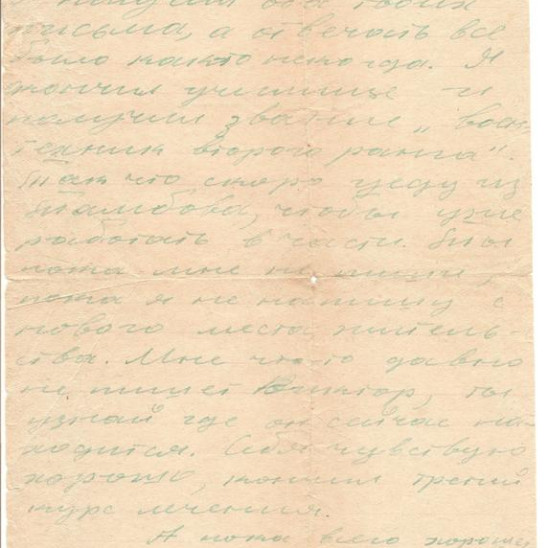 получил оба твоих
письма, а отвечать все
было както некогда. Я
кончил училище и
получил звание „воен-
техник второго ранга“.
Так что скоро уеду из
Тамбова, чтобы уже
работать в части. Ты
пока мне не пиши,
пока я не напишу с
нового места житель-
ства. Мне что-то давно
не пишет Виктор, ты
узнай где он сейчас на-
ходится. Себя чувствую
хорошо, кончил третий
курс лечения.
А пока всего хорошего